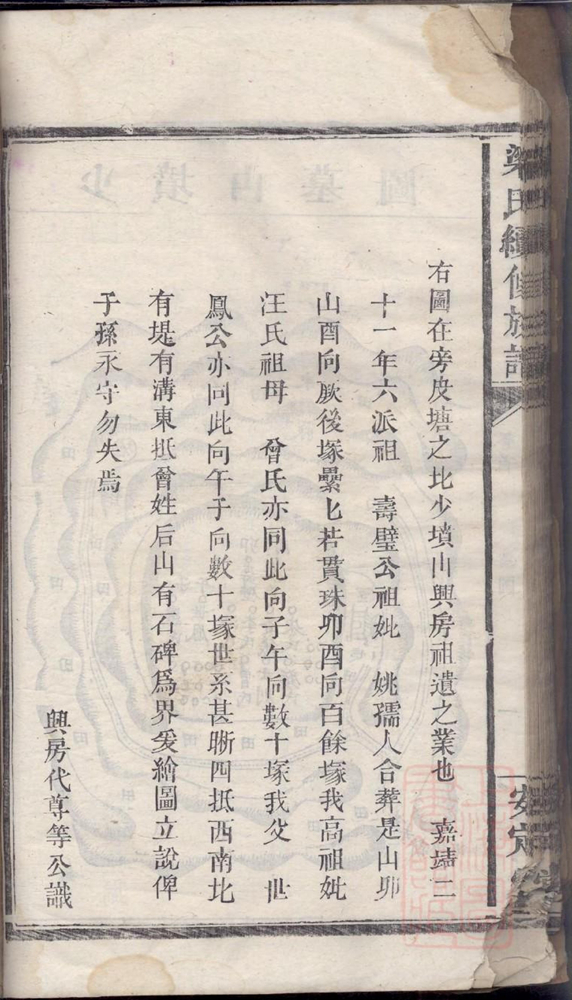 梁氏續修族譜
安定
右圖在旁皮塘之北少墳山興房祖遺之業也 嘉靖三
十一年六派祖 壽璧公祖妣 姚孺人合葬是山卯
山酉向厥後塚纍匕若貫珠卯酉向百餘塚我高祖妣
汪氏祖母 曾氏亦同此向子午向數十塚我父 世
鳳公亦同此向午子向數十塚世系甚晰四抵西南北
有堤有溝東抵曾姓后山有石碑爲界爰繪圖立說俾
子孫永守勿失焉
興房代尊等公識
少墳山墓圖